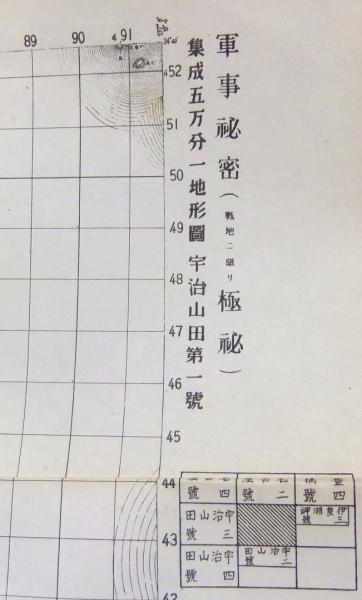 軍事祕密（戰地ニ限リ極祕）
集成五万分一地形圖 宇治山田第一號
89
90
91
34°40′
52
51
50
49
48
47
46
45
44
43
42
四號
二號
四號
宇治山田三號
伊良湖岬三號
宇治山田四號
宇治山田二號